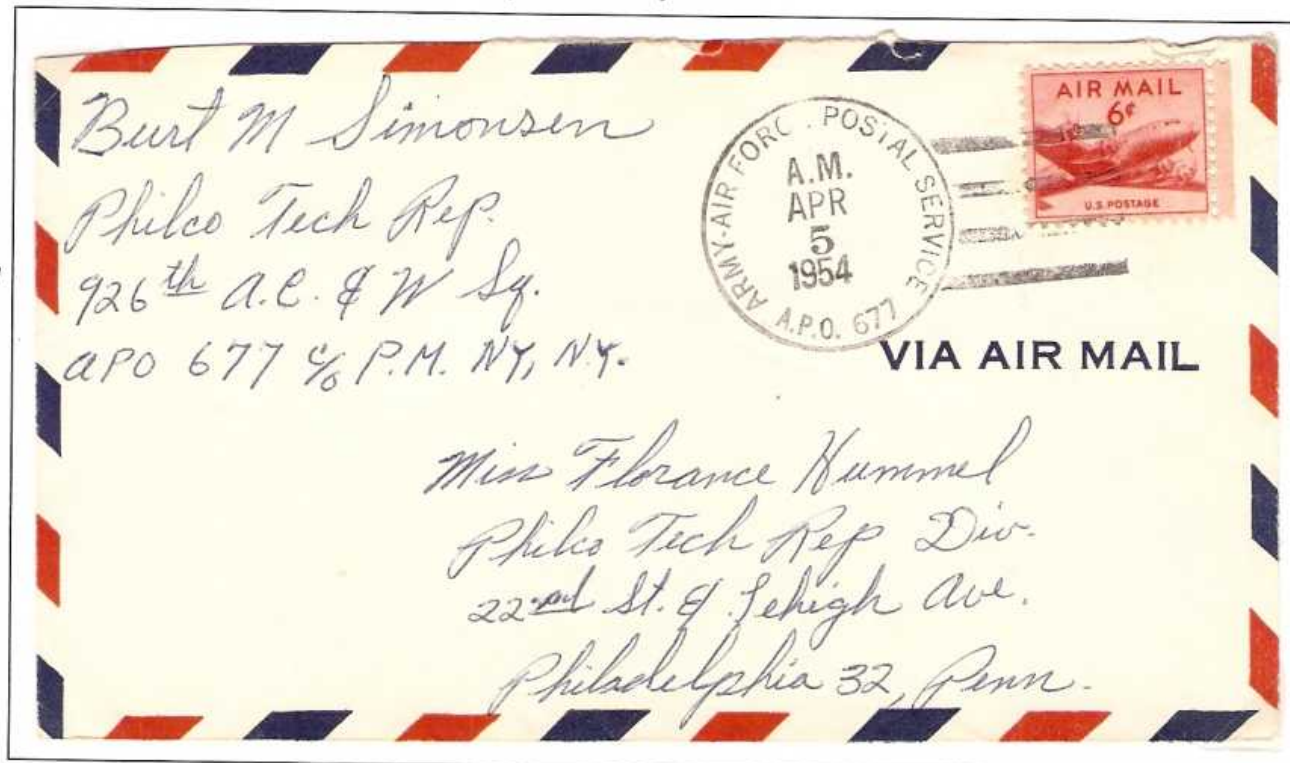 Burt M Simonsen
Philco Tech Rep.
926th A.C. & W Sq.
APO 677 c/o P.M. NY, N.Y.
ARMY-AIR FORC . POSTAL SERVICE
A.M.
APR
5
1954
A.P.O. 677
AIR MAIL
6¢
U.S. POSTAGE
VIA AIR MAIL
Miss Florance Hummel
Philco Tech Rep Div.
22nd St. & Lehigh Ave.
Philadelphia 32, Penn.